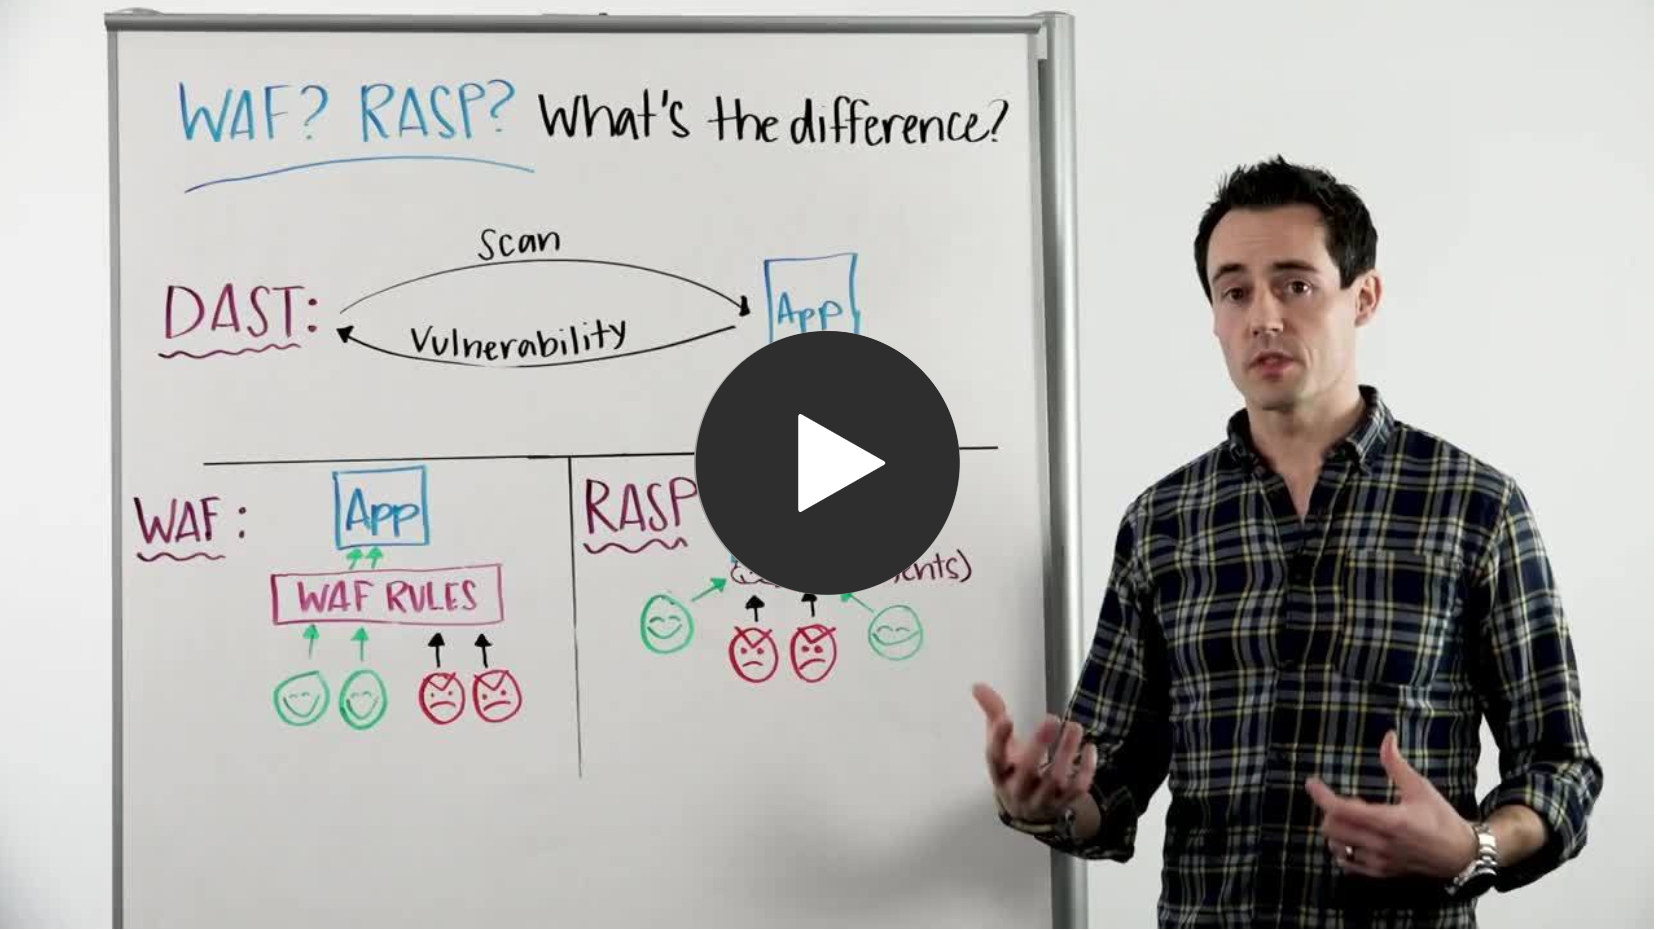 WAF? RASP? What's the difference?
Scan
DAST:
Vulnerability
App
WAF:
App
WAF RULES
RASP